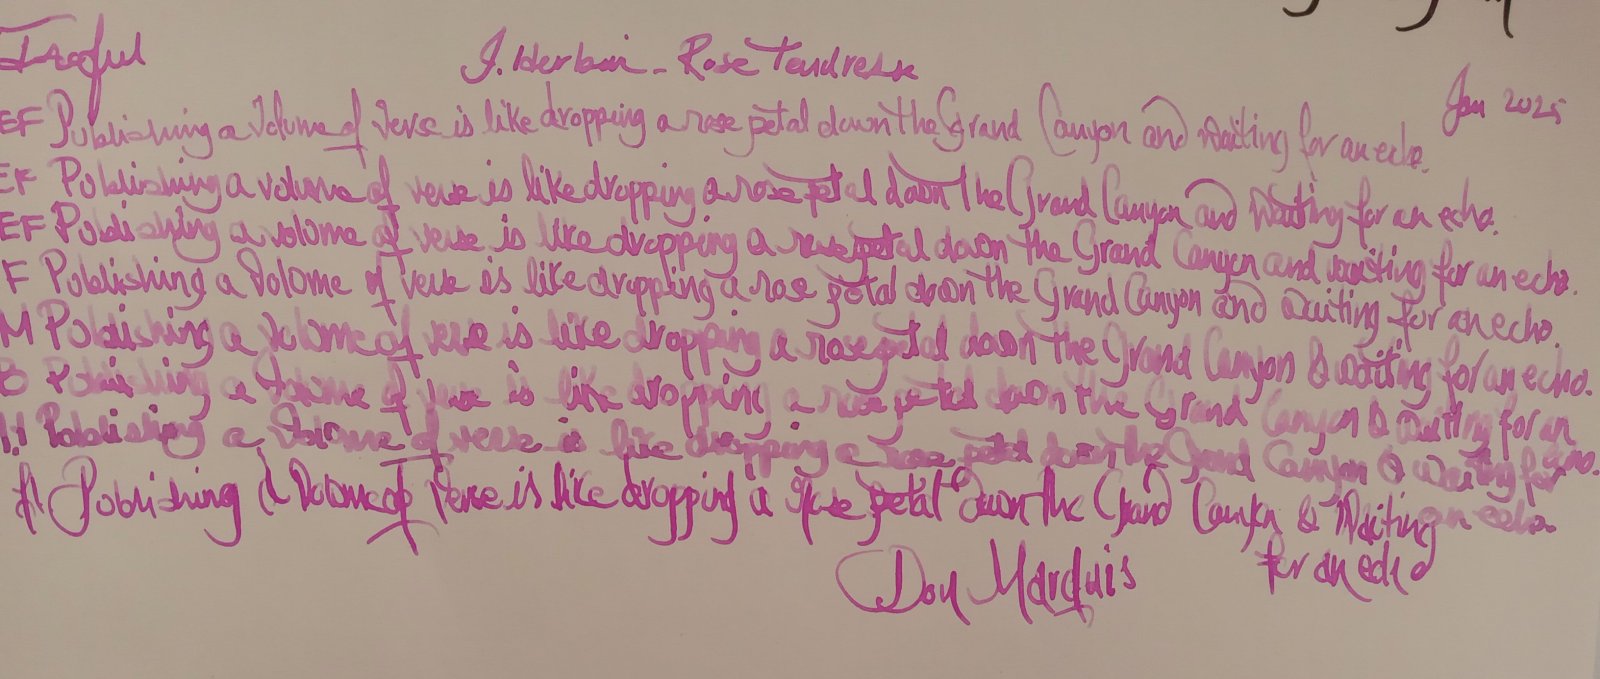 J. Herbin - Rose Tendresse
Jan 2025
EF Publishing a Volume of Verse is like dropping a rose petal down the Grand Canyon and waiting for an echo.
EF Publishing a volume of verse is like dropping a rose petal down the Grand Canyon and waiting for an echo.
EF Publishing a volume of verse is like dropping a rose petal down the Grand Canyon and waiting for an echo.
F Publishing a Volume of verse is like dropping a rose petal down the Grand Canyon and waiting for an echo.
M Publishing a Volume of verse is like dropping a rose petal down the Grand Canyon & waiting for an echo.
B Publishing a Volume of verse is like dropping a rose petal down the Grand Canyon & waiting for an echo.
Publishing a Volume of verse is like dropping a rose petal down the Grand Canyon & waiting for an echo.
Publishing a Volume of Verse is like dropping a rose petal down the Grand Canyon & Waiting
for an echo
Don Marquis